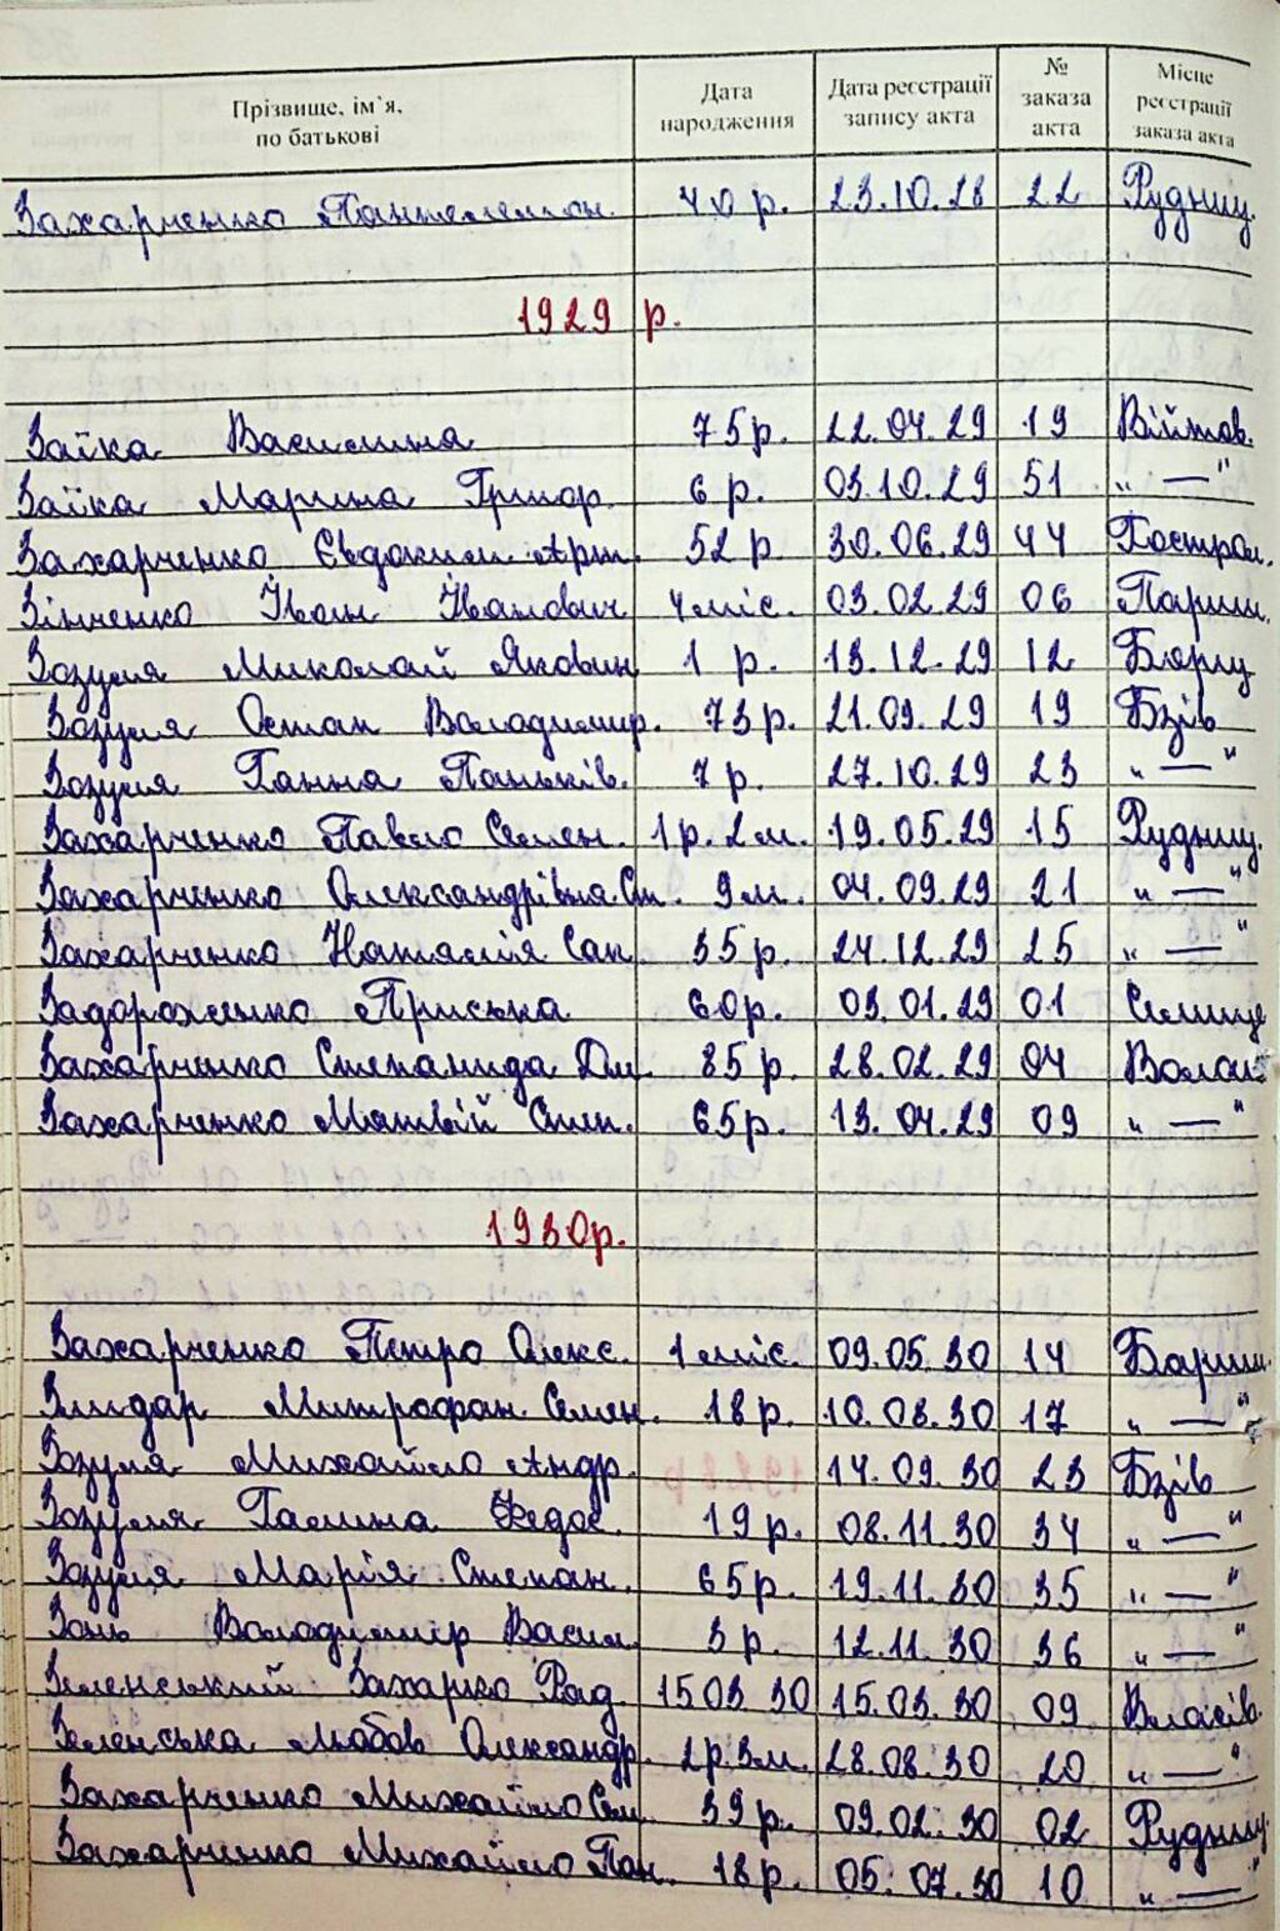 Прізвище, ім`я, по батькові Дата народження Дата реєстрації запису акта № заказа акта Місце реєстрації заказа акта
Захарченко Пантелемон. 40 р. 23.10.28 22 Рудниц.
1929 р.
Заїка Василина 75 р. 22.04.29 19 Війтов.
Заїка Марина Григор. 6 р. 03.10.29 51 " — "
Захарченко Євдоким Арт. 52 р. 30.06.29 44 Гострол.
Зінченко Іван Іванович 4 міс. 03.02.29 06 Париш.
Зозуля Миколай Яковин 1 р. 13.12.29 12 Борщ
Зозуля Остап Володимир. 73 р. 21.09.29 19 Бзів
Зозуля Ганна Паньків. 7 р. 27.10.29 23 " — "
Захарченко Павло Семен. 1 р. 2 м. 19.05.29 15 Рудниц.
Захарченко Олександрівна См. 9 м. 04.09.29 21 " — "
Захарченко Наталія Сап. 35 р. 24.12.29 25 " — "
Задороженко Приська 60 р. 03.01.29 01 Селище
Захарченко Степанида Дм. 85 р. 28.02.29 04 Волош
Захарченко Матвій Степ. 65 р. 13.04.29 09 " — "
1930 р.
Захарченко Петро Олекс. 1 міс. 09.05.30 14 Бариш.
Злидар Митрофан Семен. 18 р. 10.08.30 17 " — "
Зозуля Михайло Андр. 14.09.30 23 Бзів
Зозуля Галина Федос. 19 р. 08.11.30 34 " — "
Зозуля Марія Степан. 65 р. 19.11.30 35 " — "
Зань Володимир Васил. 3 р. 12.11.30 36 " — "
Зеленський Захарко Рад. 15 03 30 15.03.30 09 Власів.
Зеленська Любов Олександр. 2 р. 3 м. 28.08.30 20 " — "
Захарченко Михайло Сем. 39 р. 09.02.30 02 Рудниц.
Захарченко Михайло Пан. 18 р. 05.07.30 10 " — "